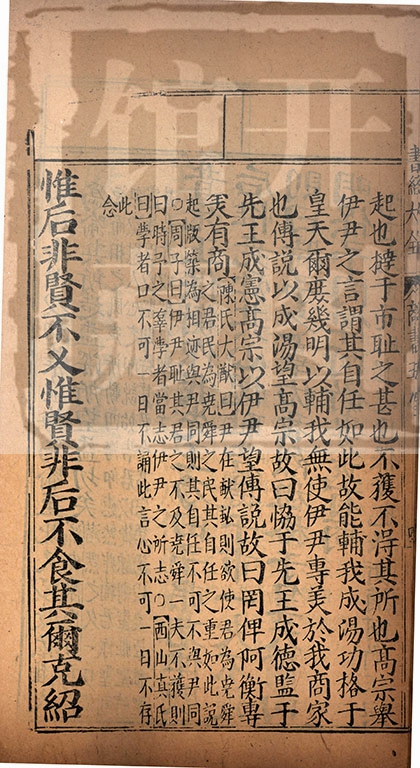 起也撻于市恥之甚也不獲不得其所也高宗舉
伊尹之言謂其自任如此故能輔我成湯功格于
皇天爾庶幾明以輔我無使伊尹專美於我商家
也傳說以成湯望高宗故曰協于先王成德監于
先王成憲高宗以伊尹望傳說故曰罔俾阿衡專
美有商
陳氏大猷曰尹在畎畝則欲使君為堯舜
之君民為堯舜之民其自任之重如此說
起版築為相迹與尹同則其自任不可不與尹同
○周子曰伊尹恥其君之不及堯舜一夫不獲則
曰時予之辜學者當志伊尹之所志○西山真氏
曰學者口不可一日不誦此言心不可一日不存
此
念
惟后非賢不乂惟賢非后不食其爾克紹